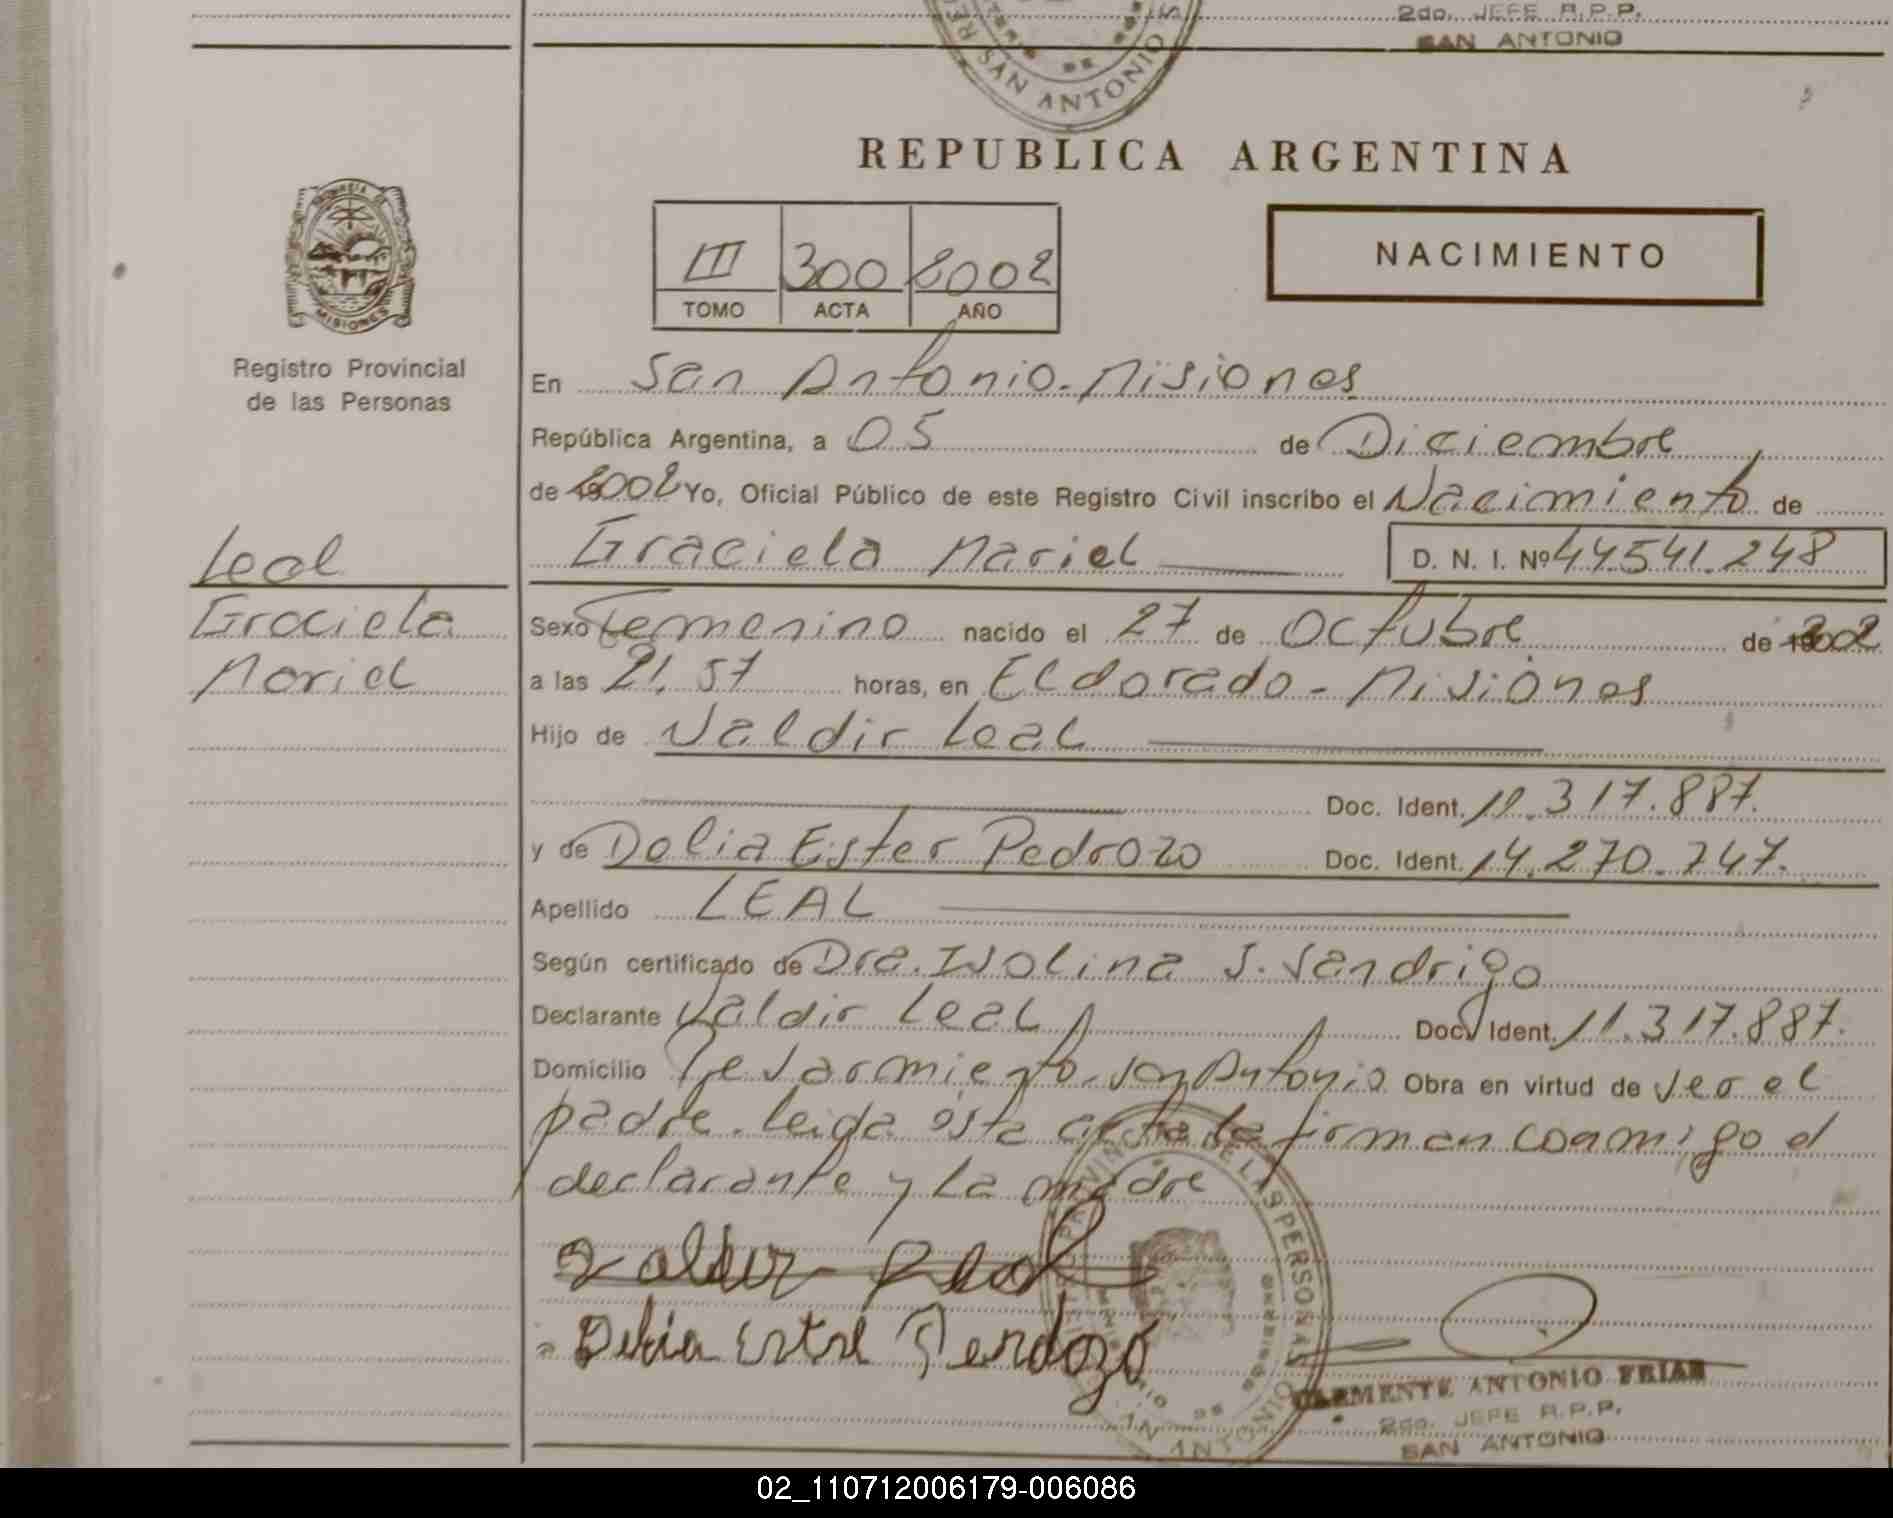 2do. JEFE R.P.P.
SAN ANTONIO
SAN ANTONIO
REPUBLICA ARGENTINA
PROVINCIA DE
MISIONES
Registro Provincial
de las Personas
III 300 2002
TOMO ACTA AÑO
NACIMIENTO
En San Antonio - Misiones
República Argentina, a 05 de Diciembre
de 2002 Yo, Oficial Público de este Registro Civil inscribo el Nacimiento de
Graciela Mariel D. N. I. Nº 44.541.248
Leal
Graciela
Mariel
Sexo Femenino nacido el 27 de Octubre de 2002
a las 21.57 horas, en Eldorado - Misiones
Hijo de Valdir Leal
Doc. Ident. 11.317.887.
y de Delia Ester Pedrozo Doc. Ident. 14.270.747.
Apellido LEAL
Según certificado de Dra. Isolina S. Sandrigo
Declarante Valdir Leal Doc. Ident. 11.317.887.
Domicilio Sarmiento - San Antonio Obra en virtud de ser el
padre. Leida ésta acta la firman conmigo el
declarante y la madre
Valdir Leal
Delia Pendozo
PROVINCIAL DE LAS PERSONAS
SAN ANTONIO
CLEMENTE ANTONIO FRIAS
2do. JEFE R.P.P.
SAN ANTONIO
02_110712006179-006086